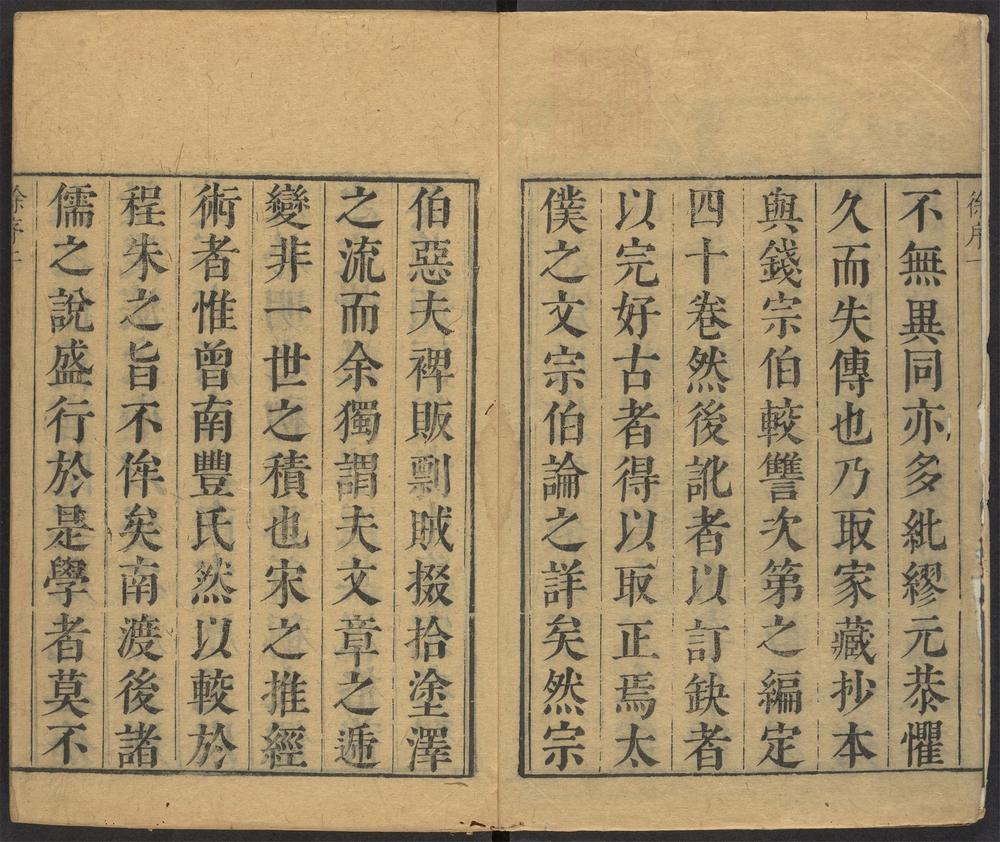 徐序一
不無異同亦多紕繆元恭懼
久而失傳也乃取家藏抄本
與錢宗伯較讐次第之編定
四十卷然後訛者以訂缺者
以完好古者得以取正焉太
僕之文宗伯論之詳矣然宗
伯惡夫裨販剽賊掇拾塗澤
之流而余獨謂夫文章之遞
變非一世之積也宋之推經
術者惟曾南豐氏然以較於
程朱之旨不侔矣南渡後諸
儒之說盛行於是學者莫不
徐序二